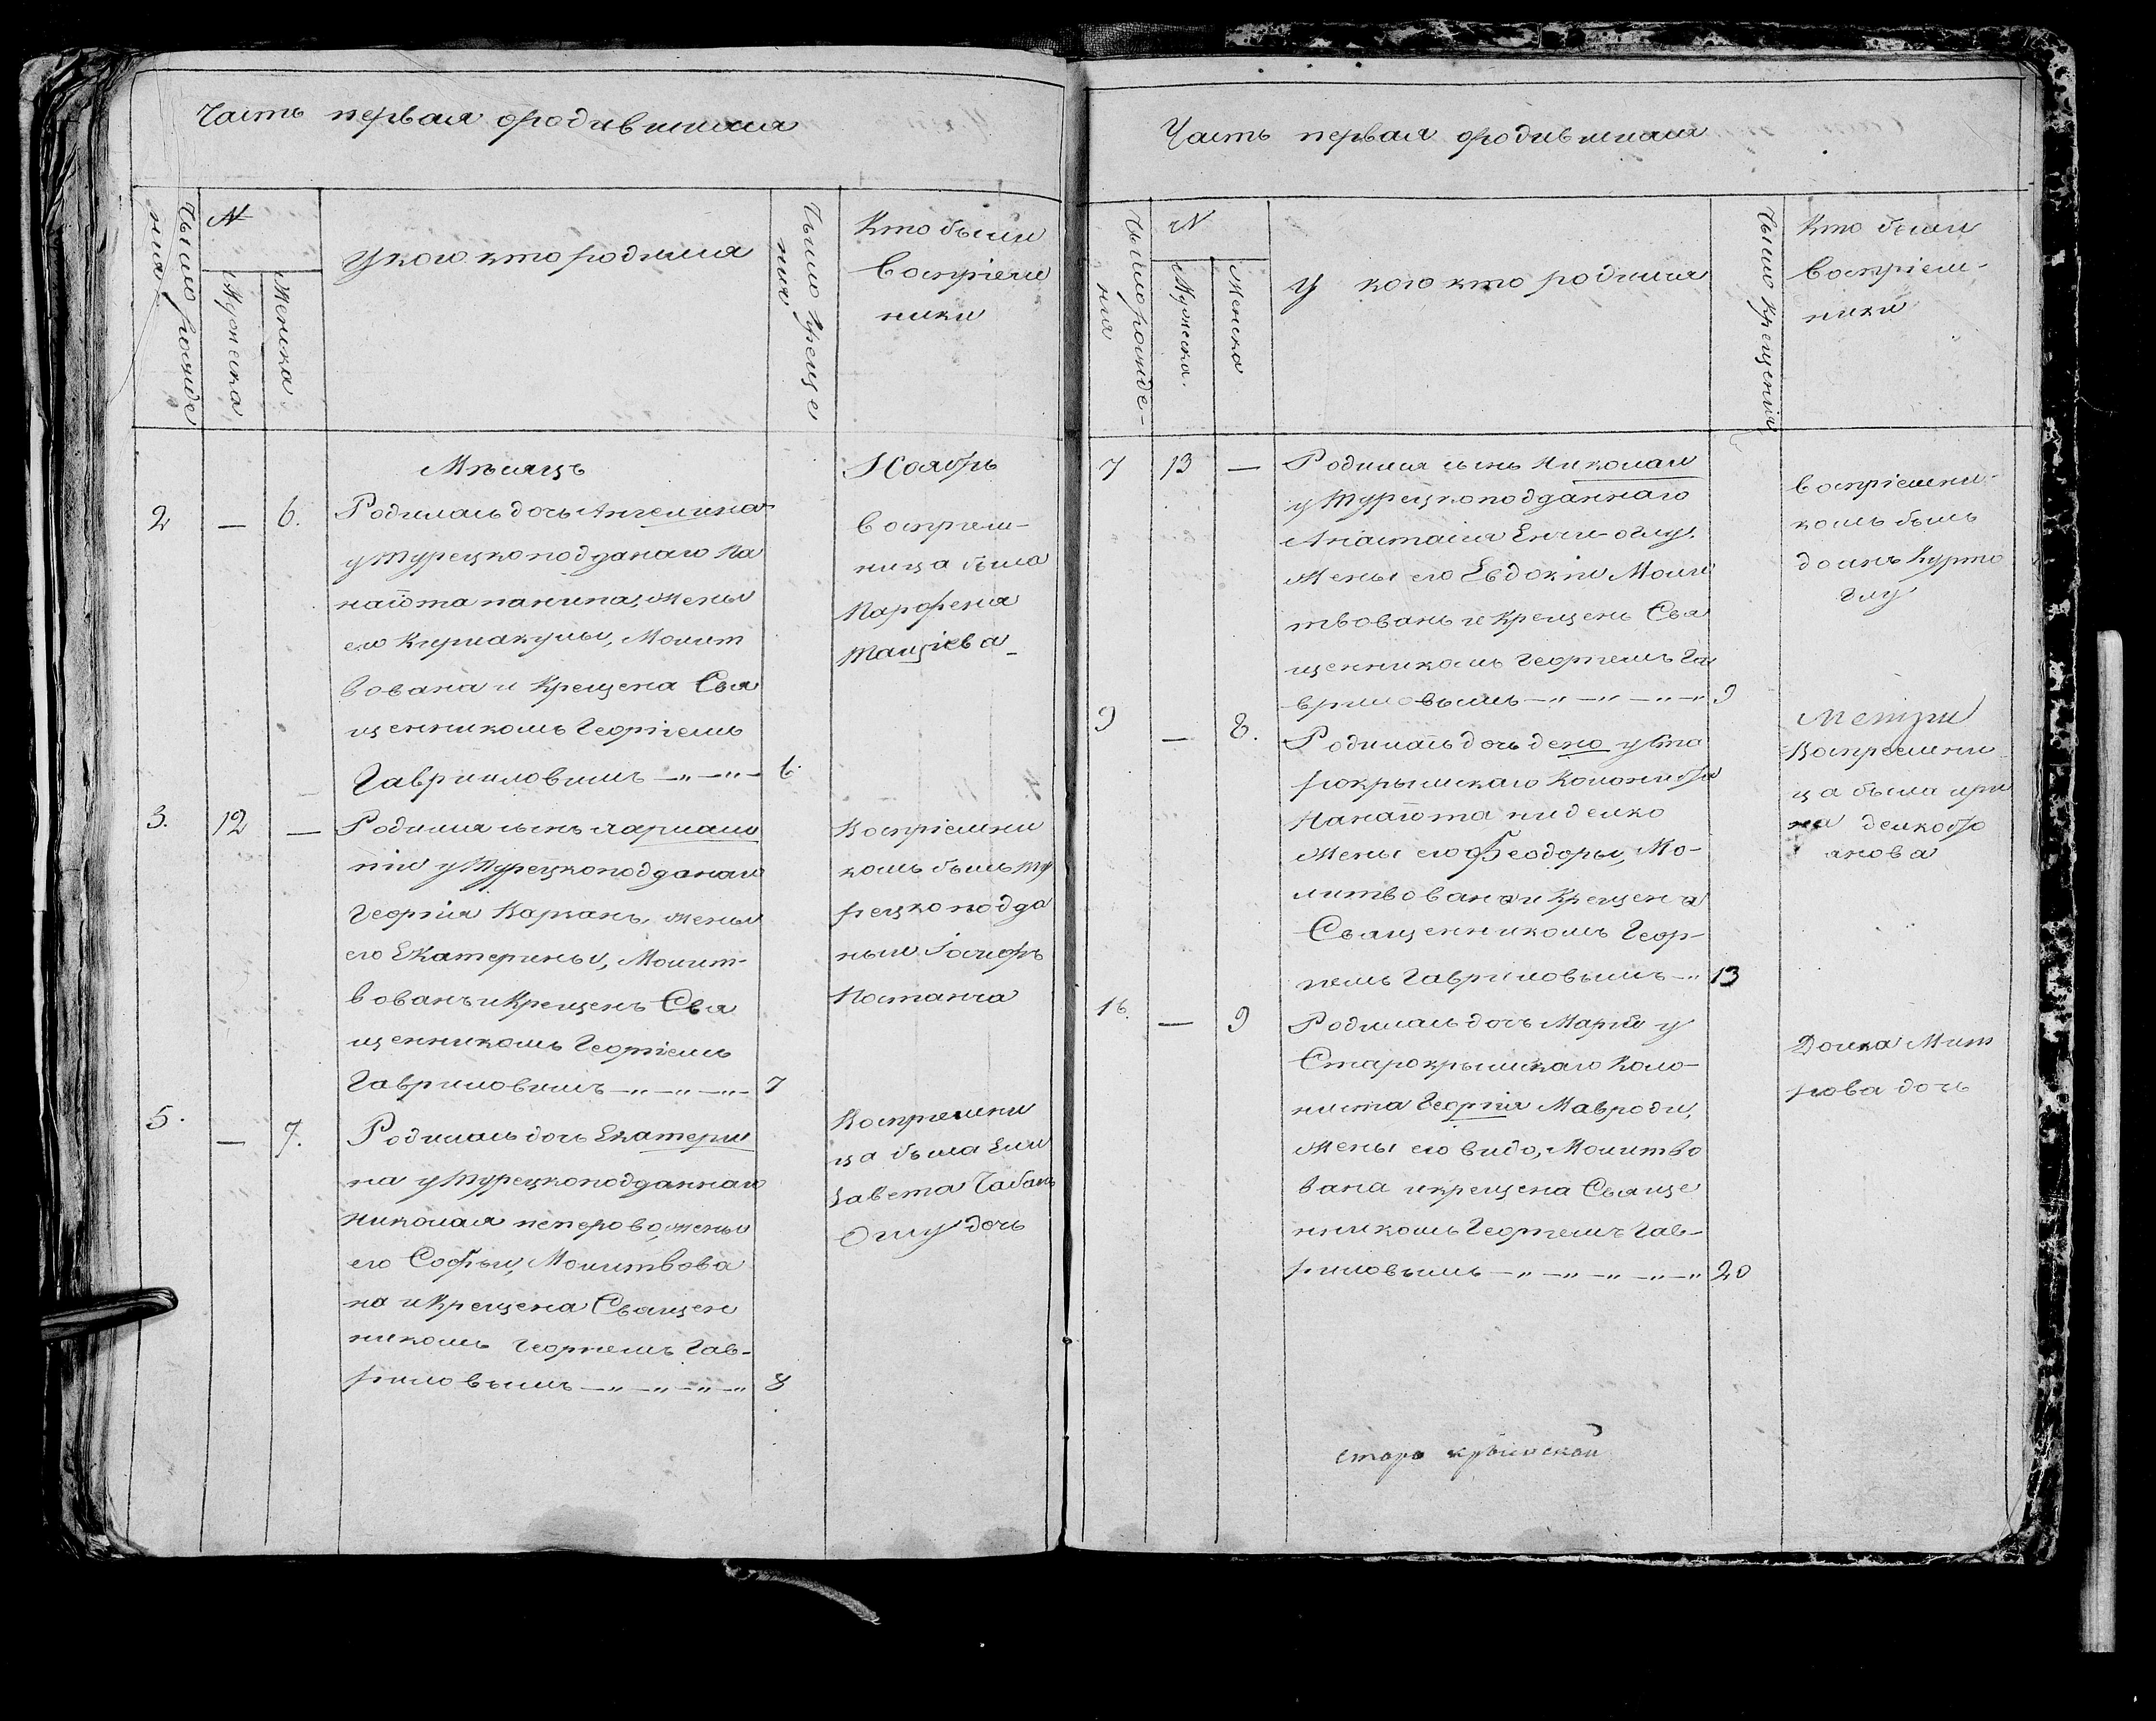 Часть первая ородившихся
Число рожде
ния
№
Мужеска
Женска
У кого кто родился
Число креще
ния.
Кто были
воспріем
ники
Мѣсяцъ
Ноябрь
2 — 6.
Родилась дочь Ангелина
у Турецкоподданаго Па
наіота панина, жены
его Кириакулы, Молит
вована и крещена Свя
щенникомъ Георгіемъ
Гавриловымъ —"—"— 6
воспріем-
ница была
Парфенія
3. 12 —
Родился сынъ
у Турецкоподданаго
Георгія Каркань, жены
его Екатерины, Молит-
вованъ и крещенъ Свя
щенникомъ Георгіемъ
Гавриловымъ —"—"—"— 7
Воспріемни
комъ былъ ту
рецкоподда
ный Іосифъ
5. — 7.
Родилась дочь Екатери
на у Турецкоподданнаго
Николая пеперово, жены
его Софьи, Молитвова
на и крещена Священ
никомъ Георгіемъ Гав-
риловымъ —"—"—"—" 8
Воспріемни
ца была Ели
завета Чабанъ
Оглу дочь
Часть первая ородившихся
Число рожде-
ния
№
Мужеска.
Женска
У кого кто родился
Число крещения
Кто были
воспріем-
ники
7 13 —
Родился сынъ Николай
у Турецкоподданнаго
Анастасія Енчи-оглу.
жены его Евдокіи Моли
твованъ и крещенъ Свя
щенникомъ Георгіемъ Га
вриловымъ —"—"—"—" 9
воспріемни-
комъ былъ
Курто
глу
9 — 8.
Родилась дочь дено у Ста
рокрымскаго Колониста
Панаіота
жены его Феодоры, Мо-
литвована и крещена
Священникомъ Геор-
гіемъ Гавриловымъ —" 13
Воспріемни
ца была ири
на
16. — 9
Родилась дочь Марія у
Старокрымскаго Коло-
ниста Георгія Мавроди,
жены его видо, Молитво
вана и крещена Свяще
нникомъ Георгіемъ Гав-
риловымъ —"—"—"—"—" 20
Дочка Мит
рова дочь
старо крымской